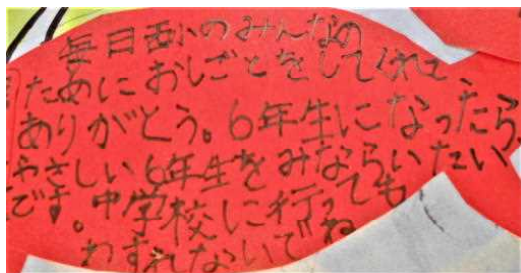 毎日西小のみんなの
ためにおしごとをしてくれて、
ありがとう。6年生になったら
やさしい6年生をみならいたい
です。中学校に行っても
わすれないでね